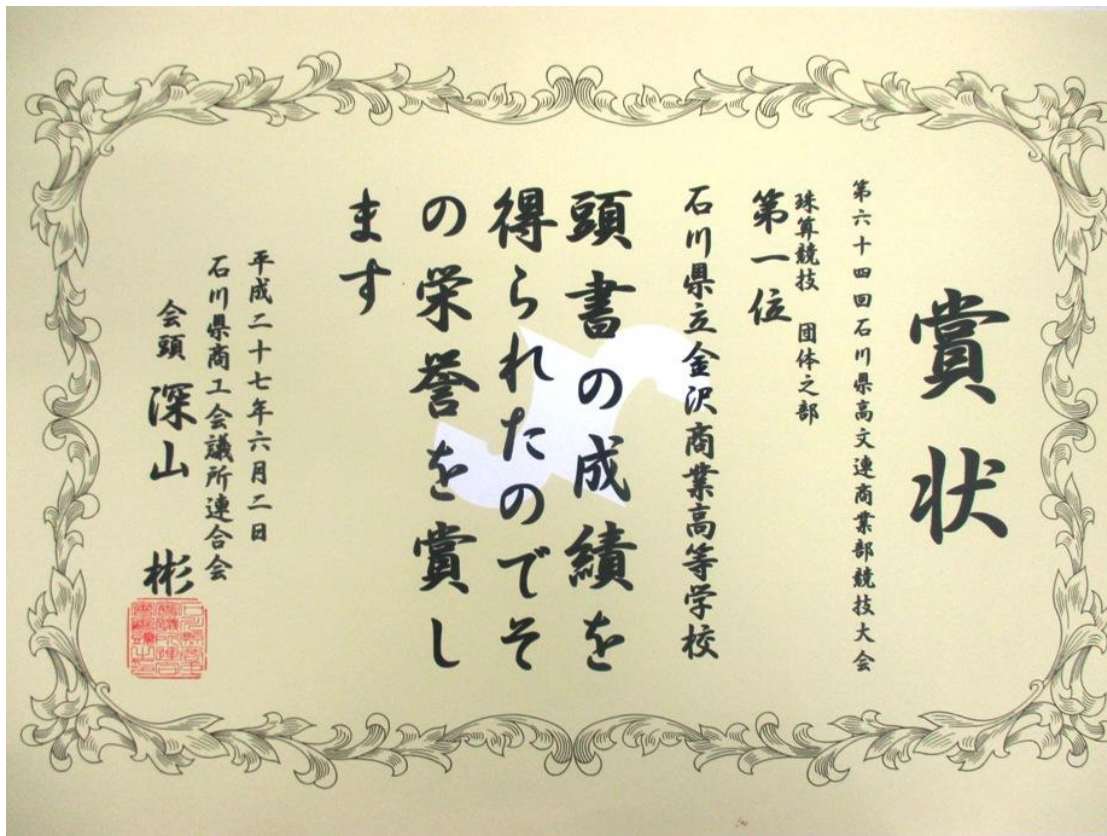 賞状
第六十四回石川県高文連商業部競技大会
珠算競技 団体之部
第一位
石川県立金沢商業高等学校
頭書の成績を
得られたのでそ
の栄誉を賞し
ます
平成二十七年六月二日
石川県商工会議所連合会
会頭 深山 彬